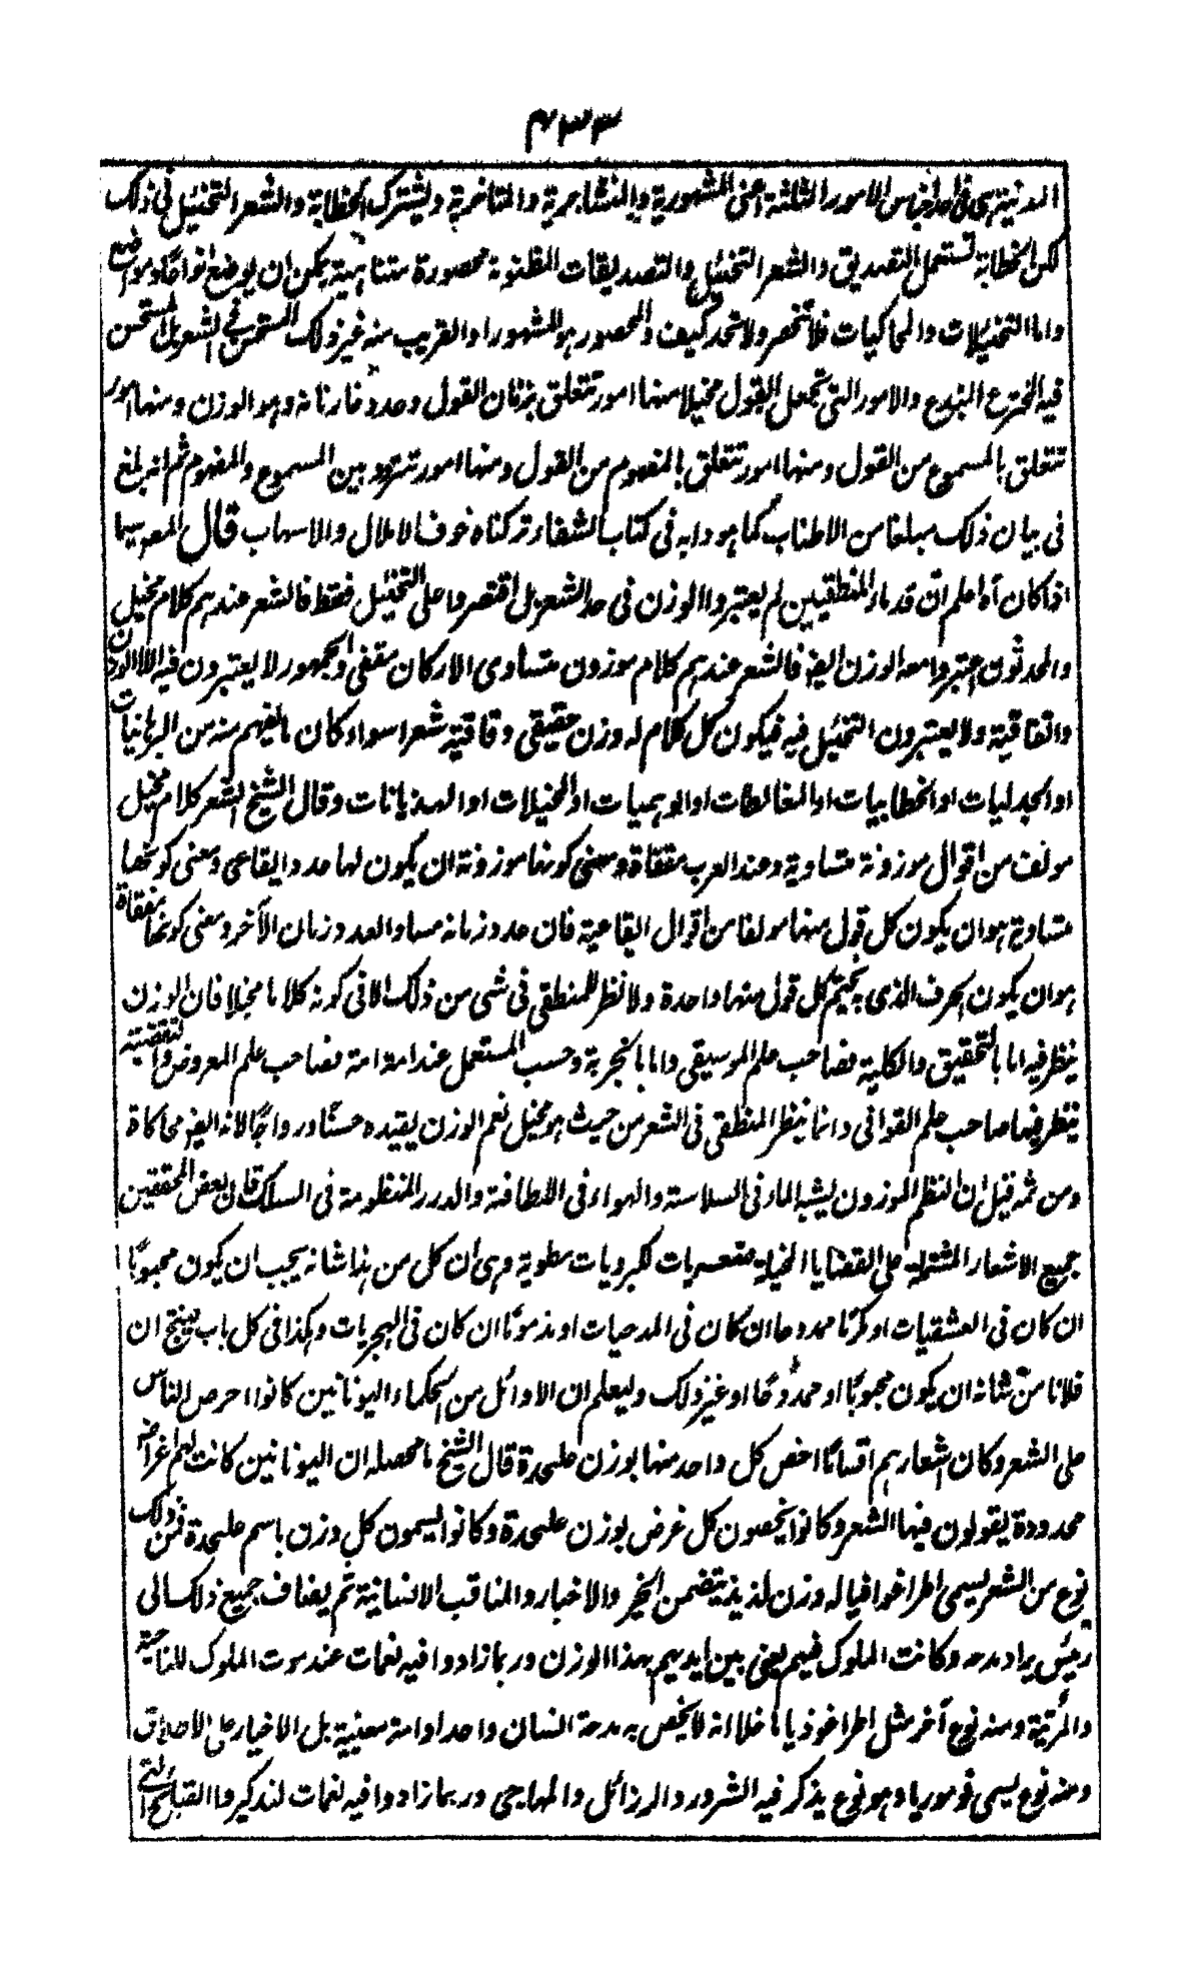 ٤٣٣
المدنية هي في احد اجناس الامور الثلثة اعنى المشهورية والتشاجرية والمتاخرية ويشترك الخطابة والشعر التخئيل فى ذلك
لكن الخطابة تستعمل التصديق والشعر التخئيل والتصديقات المظنونة محصورة متناهية يمكن ان يوضع انواعًا ومواضع
واما التخئيلات والمحاكيات فلا تنحصر ولا تحد كيف والمحصور هو المشهور او القريب منه غير ذلك المستحسن فى الشعر بل المستحسن
فيه المخترع المبتدع والامور التى تجعل القول مخيلا منها امور تتعلق بزمان القول وعدد فارتانه وهو الوزن ومنها امور
تتعلق بالمسموع من القول ومنها امور تتعلق بالمفهوم من القول ومنها امور تتردد بين المسموع والمفهوم ثم انه بلغ
فى بيان ذلك مبلغا من الاطناب كما هو دابه فى كتاب الشفاء تركناه خوف الاملال والاسهاب قال المصـ سيما
اذا كان آه اعلم ان قدماء المنطقيين لم يعتبروا الوزن فى حد الشعر بل اقتصروا على التخئيل فقط فالشعر عندهم كلام مخيل
والمحدثون اعتبروا معه الوزن ايضـ فالشعر عندهم كلام موزون متساوى الاركان مقفى والجمهور لا يعتبرون فيه الا الوزن
والقافية ولا يعتبرون التخئيل فيه فيكون كل كلام له وزن حقيقى وقافية شعرا سواء كان ما يفهم منه من البرهانيات
او الجدليات او الخطابيات او المغالطات او الوهميات او المخيلات او الهذيانات وقال الشيخ الشعر كلام مخيل
مولف من اقوال موزونة متساوية وعند العرب مقفاة ومعنى كونها موزونة ان يكون لها عدد ايقاعى ومعنى كونها
متساوية هو ان يكون كل قول منها مولفا من اقوال ايقاعية فان عدد زمانه مساو لعدد زمان الآخر ومعنى كونها مقفاة
هو ان يكون الحرف الذى يختم كل قول منها واحدة ولا نظر للمنطقى فى شى من ذلك الا فى كونه كلاما مخيلا فان الوزن
ينظر فيه اما بالتحقيق والكلية فصاحب علم الموسيقى واما بالتجربة وحسب المستعمل عند امة امة فصاحب علم العروض والتقفية
ينظر فيها صاحب علم القوافى وانما ينظر المنطقى فى الشعر من حيث هو مخيل نعم الوزن يفيده حسنًا ورواجًا لانه ايضـ محاكاة
ومن ثمه قيل ان النظم الموزون يشبه الماء فى السلاسة والهواء فى اللطافة والدرر المنظومة فى السلك قال بعض المحققين
جميع الاشعار المشتملة على القضايا المخيلة صغريات لكبرويات مطوية وهى ان كل من هذا شانه يجب ان يكون محبوبًا
ان كان فى العشقيات او كرمًا ممدوحا ان كان فى المدحيات او مذمومًا ان كان فى الهجريات وهكذا فى كل باب ينتج ان
فلانا من شانه ان يكون محبوبًا او ممدوحًا او غير ذلك وليعلم ان الاوائل من الحكماء اليونانين كانوا احرص الناس
على الشعر وكان اشعارهم اقسامًا اخص كل واحد منها بوزن علىحدة قال الشيخ ما محصله ان اليونانين كانت لهم اغراض
محدودة يقولون فيها الشعر وكانوا يخصون كل غرض بوزن علىحدة وكانوا يسمون كل وزن باسم علىحدة فمن ذلك
نوع من الشعر يسمى اطراغوافيا له وزن لذيذ يتضمن الخير والاخيار والمناقب الانسانية ثم يضاف جميع ذلك الى
رئيس يراد مدحه وكانت الملوك فيهم يغنى بين ايديهم بهذا الوزن وربما زادوا فيه نغمات عند موت الملوك للناحية
والمرثية ومنه نوع آخر مثل اطراغوذيا ما خلا انه لا يخص به مدحة انسان واحد او امة معينية بل الاخيار على الاطلاق
ومنه نوع يسمى قوموريا وهو نوع يذكر فيه الشرور والرزائل والمهاجى وربما زادوا فيه نغمات لتذكير وا القبائح التى